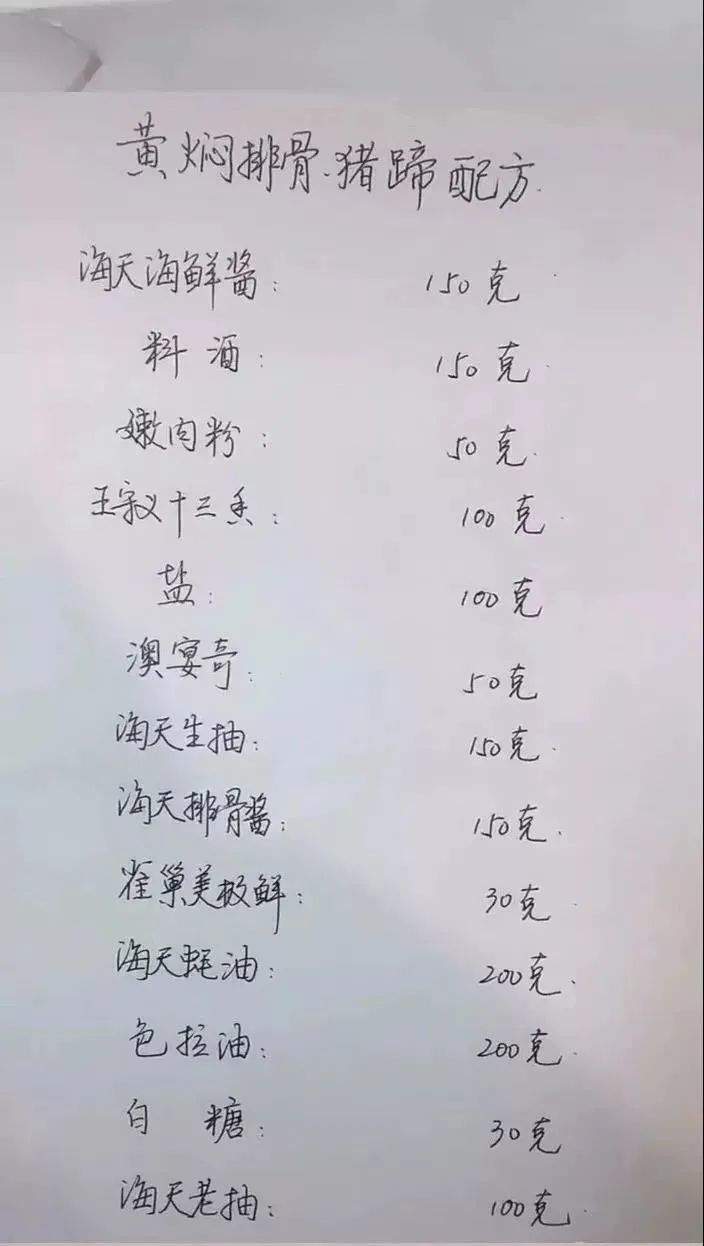 黄焖排骨.猪蹄配方.
海天海鲜酱： 150克
料酒： 150克
嫩肉粉： 50克.
王守义十三香： 100克
盐： 100克
澳宴奇： 50克
海天生抽： 150克.
海天排骨酱： 150克.
雀巢美极鲜： 30克
海天蚝油： 200克.
色拉油： 200克.
白糖： 30克
海天老抽： 100克.